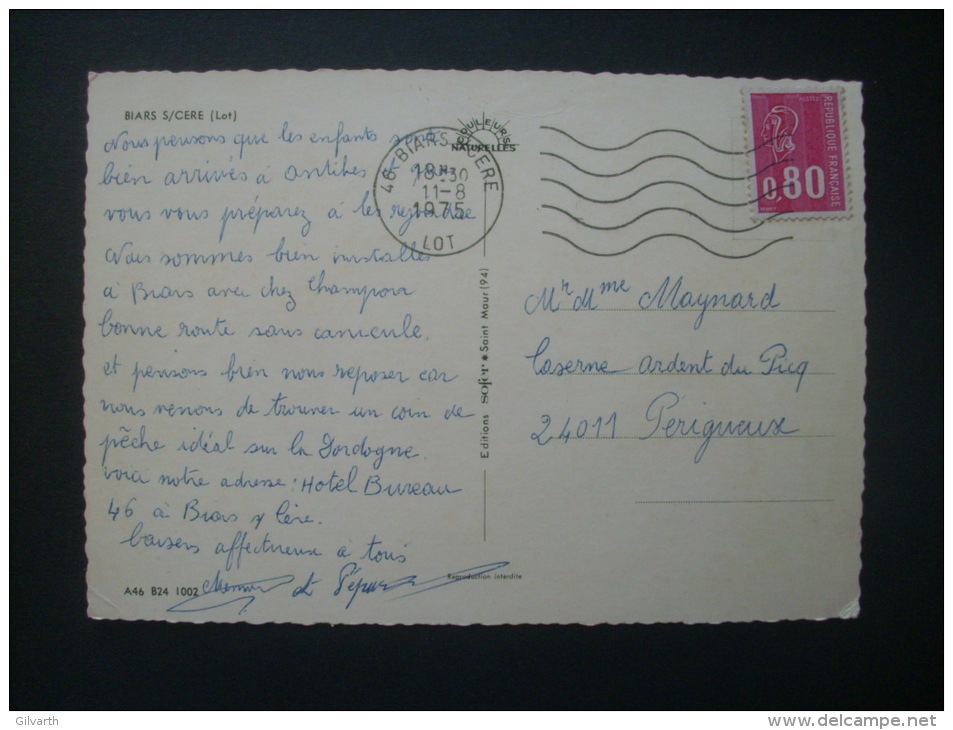 BIARS S/CERE (Lot)
Nous pensons que les enfants sont
bien arrivés à antibes
vous vous préparez à les rejoindre
Nous sommes bien installés
à Biars avec chez
bonne route sans canicule.
et pensons bien nous reposer car
nous venons de trouver un coin de
pêche idéal sur la Dordogne.
voici notre adresse : Hotel Bureau
46 à Biars s/ Cère.
baisers affectueux à tous
et Pépère
A46 B24 1002
COULEURS
NATURELLES
46-BIARS CERE
18H30
11-8
1975
LOT
Editions sofer * Saint Maur (94)
Reproduction interdite
POSTES
REPUBLIQUE FRANÇAISE
0,80
Mr Mme Maynard
Caserne ardent du Picq
24011 Périgueux
Gilvarth
delcampe.net